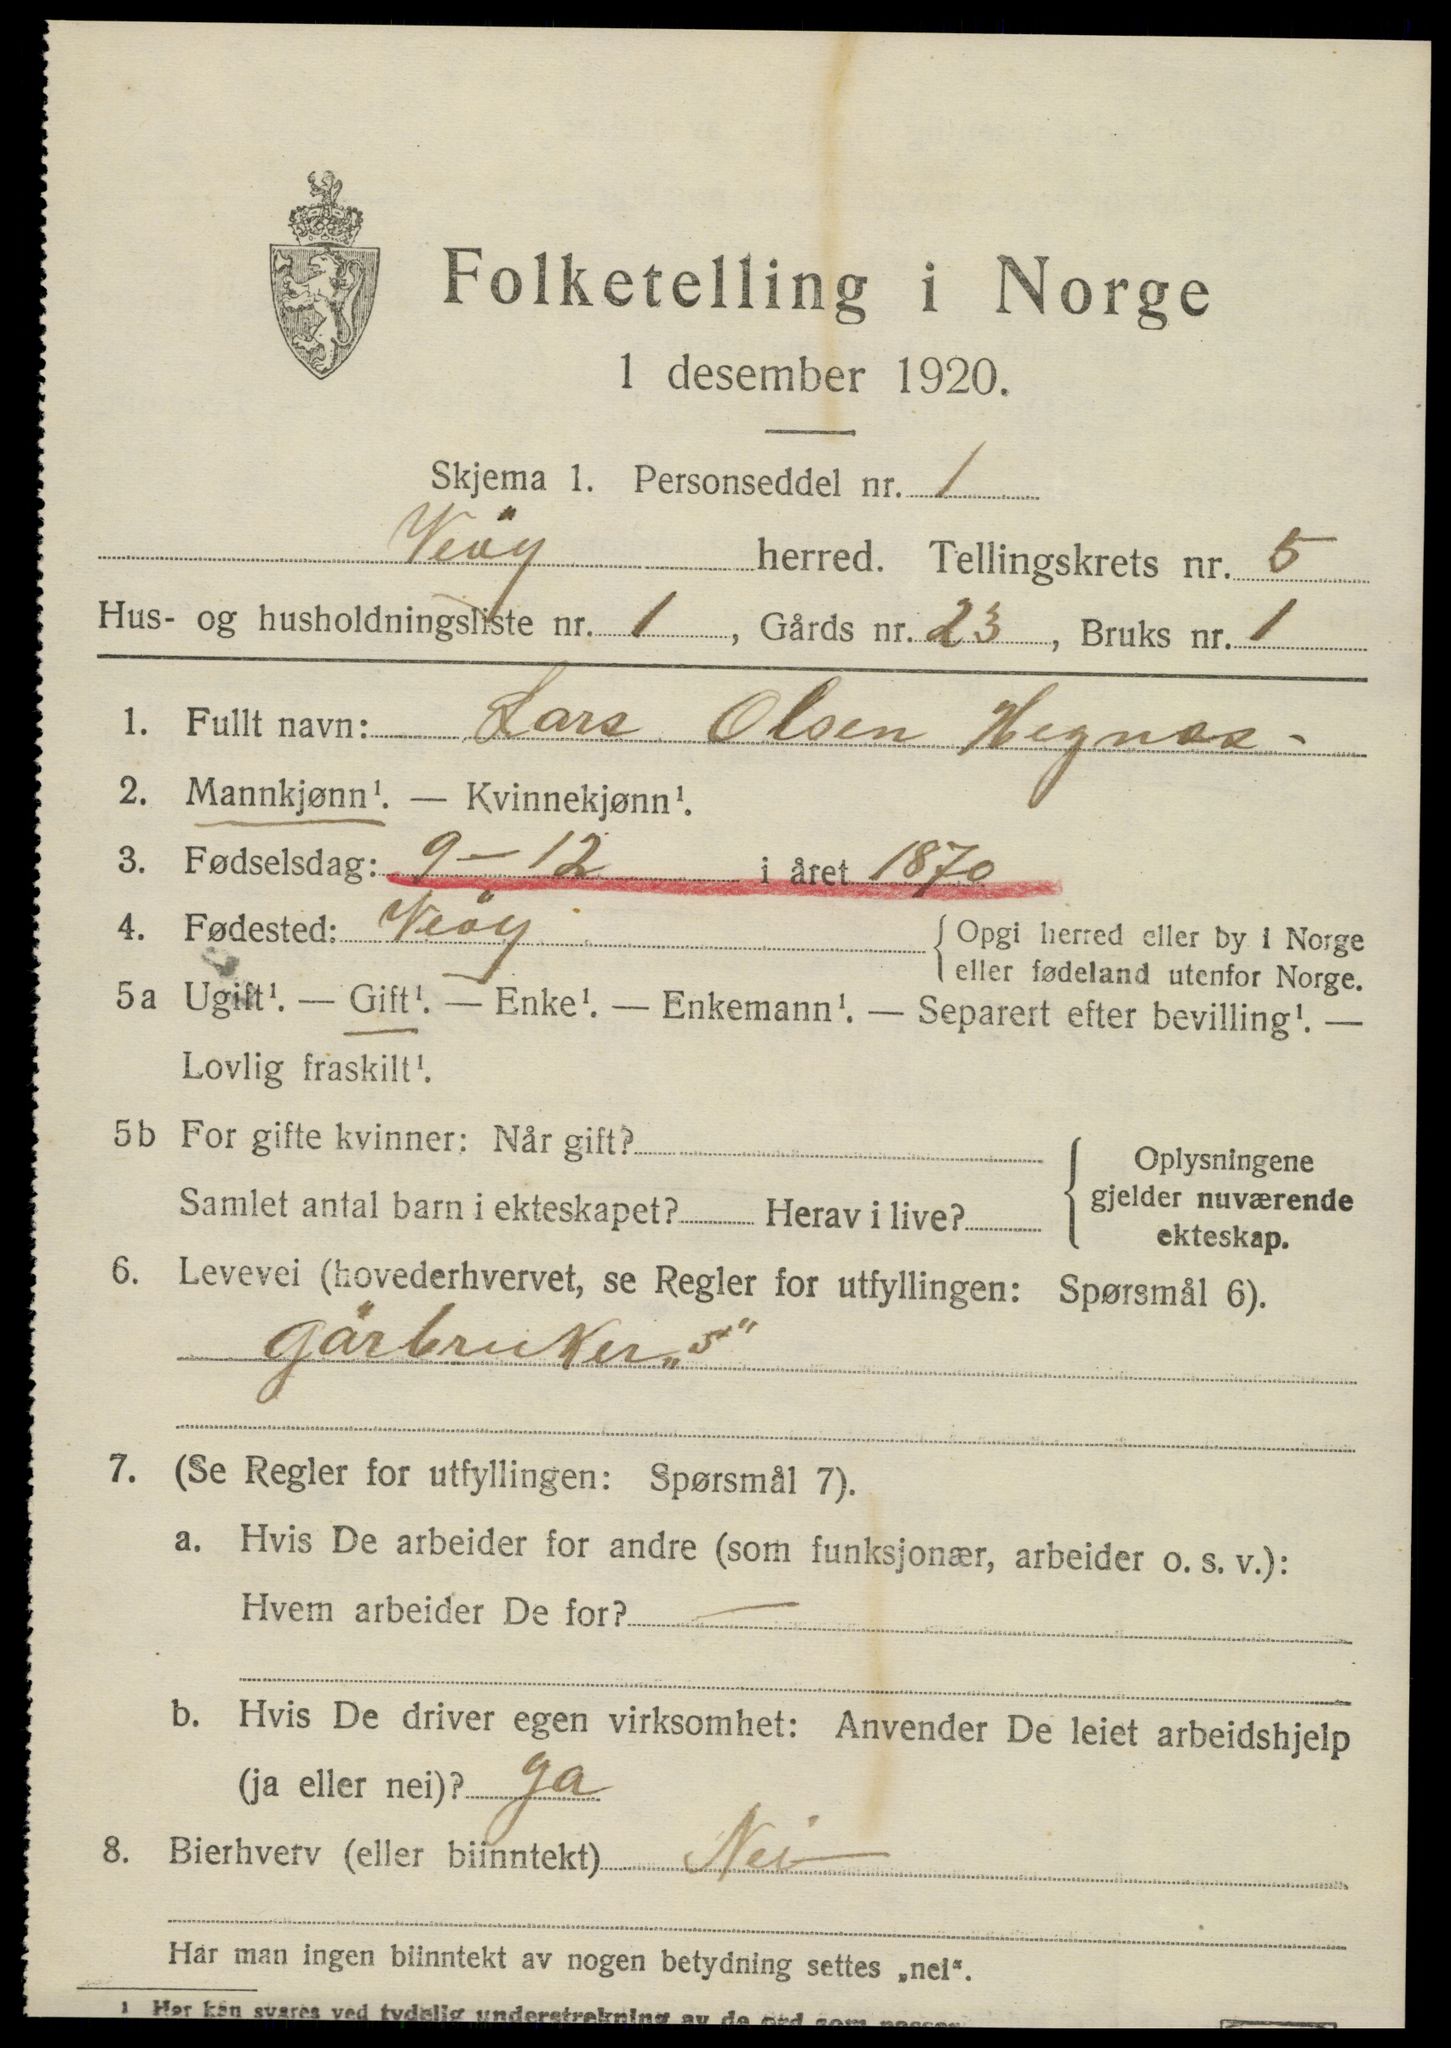 Folketelling i Norge
1 desember 1920.
Skjema 1. Personseddel nr. 1
Veöy herred. Tellingskrets nr. 5
Hus- og husholdningsliste nr. 1, Gårds nr. 23, Bruks nr. 1
1. Fullt navn: Lars Olsen Hegnes-
2. Mannkjønn¹. — Kvinnekjønn¹.
3. Fødselsdag: 9-12 i året 1870
4. Fødested: Veöy { Opgi herred eller by i Norge
eller fødeland utenfor Norge.
5a Ugift¹. — Gift¹. — Enke¹. — Enkemann¹. — Separert efter bevilling¹. —
Lovlig fraskilt¹.
5b For gifte kvinner: Når gift? { Oplysningene
gjelder nuværende
ekteskap.
Samlet antal barn i ekteskapet? Herav i live?
6. Levevei (hovederhvervet, se Regler for utfyllingen: Spørsmål 6).
gårbruker „5"
7. (Se Regler for utfyllingen: Spørsmål 7).
a. Hvis De arbeider for andre (som funksjonær, arbeider o. s. v.):
Hvem arbeider De for? —
b. Hvis De driver egen virksomhet: Anvender De leiet arbeidshjelp
(ja eller nei)? ja
8. Bierhverv (eller biinntekt) Nei —
Har man ingen biinntekt av nogen betydning settes „nei“.
1 Her kan svares ved tydelig understrekning av de ord som passer.